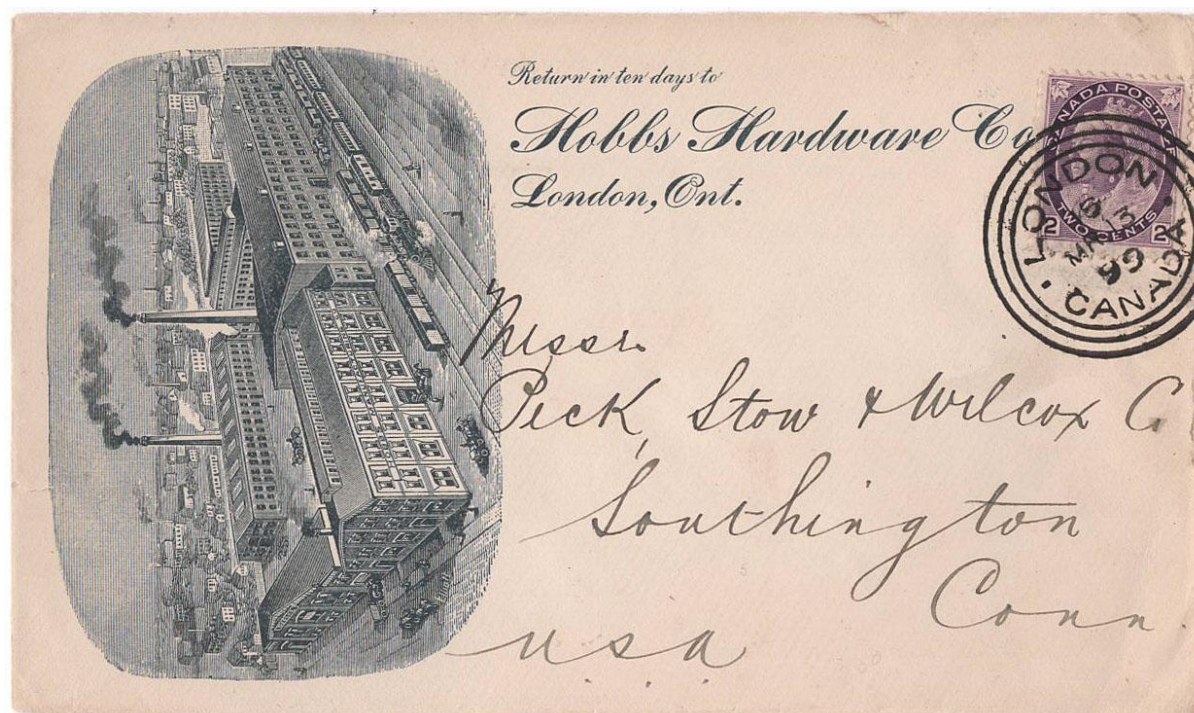 Return in ten days to
Hobbs Hardware Co
London, Ont.
CANADA POSTAGE
2 TWO CENTS 2
LONDON
MR 13
99
CANADA
Messr.
Peck, Stow & Wilcox C
Southington
Conn.
USA